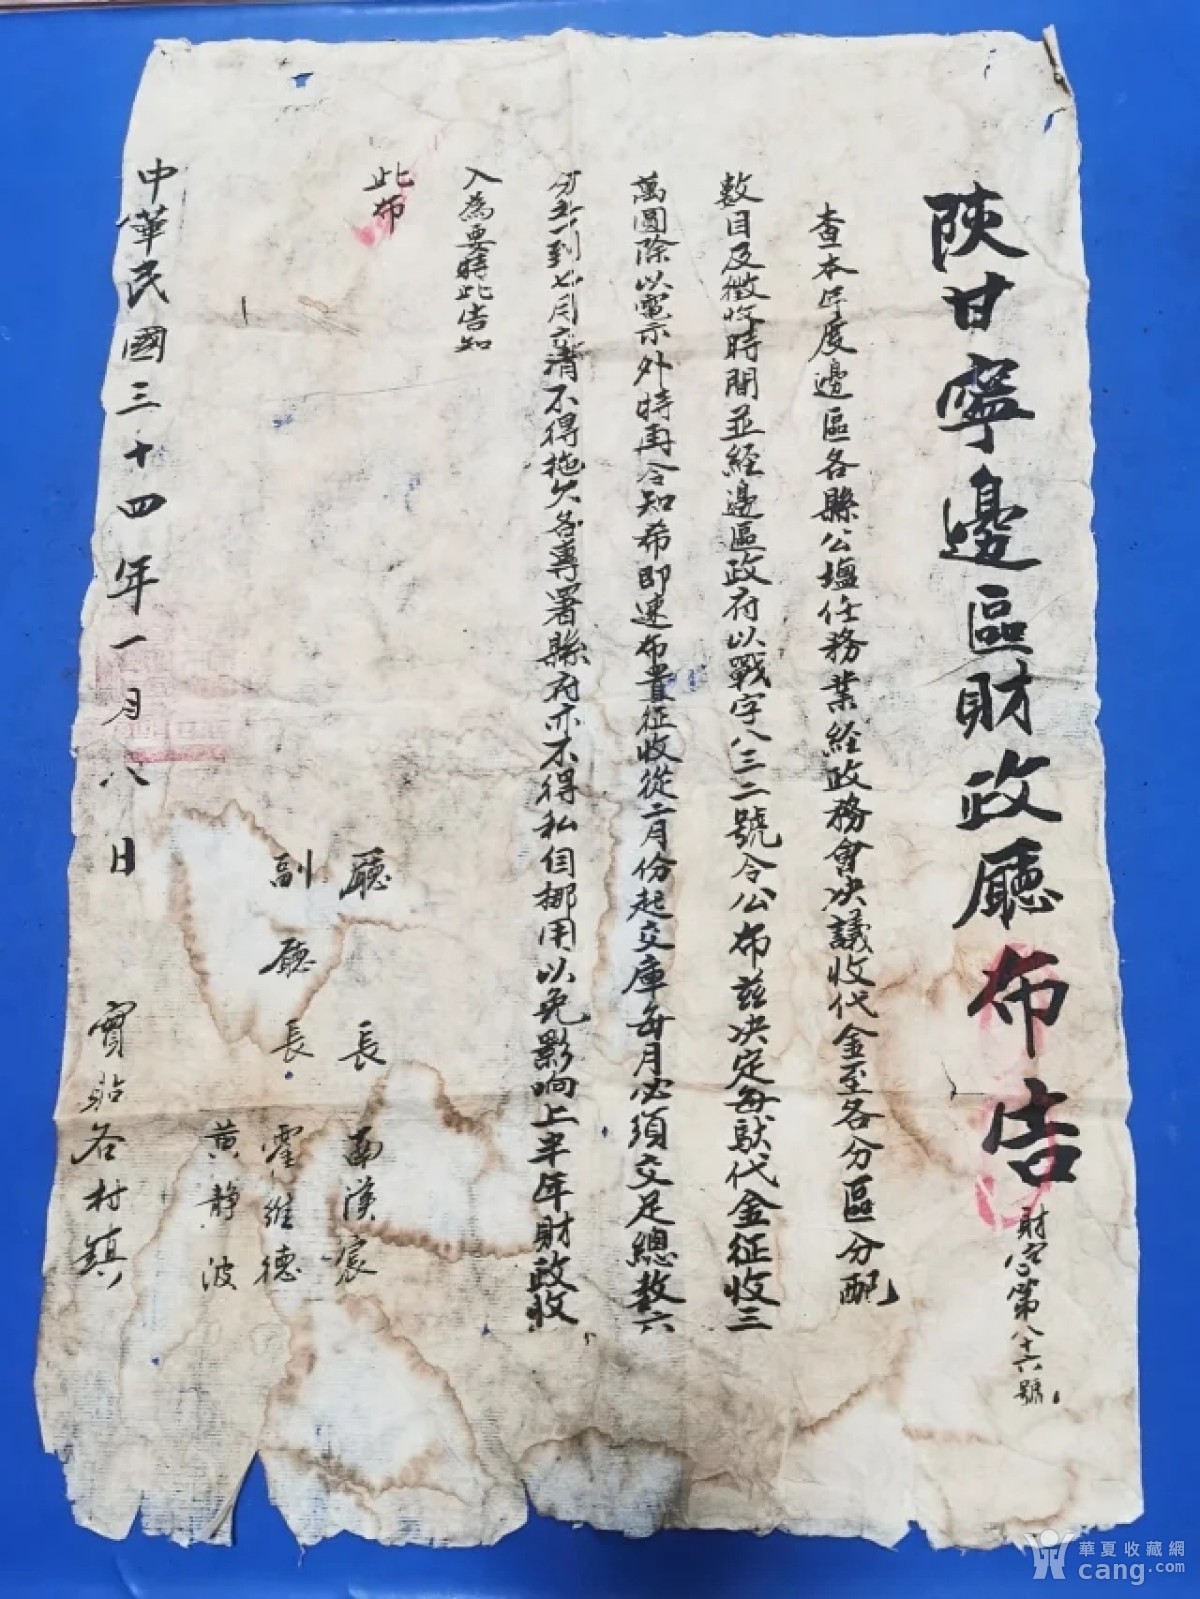 陝甘寧邊區財政廳布告
財字第八十六號
查本年度邊區各縣公塩任務業經政務會决議收代金至各分區分配
數目及徵收時間並經邊區政府以戰字八三二號令公布兹决定每馱代金征收三
萬圓除以電示外特再令知希即速布置征收從二月份起交庫每月必須交足總數六
分之一到七月交清不得拖欠各專署縣府亦不得私自挪用以免影响上半年財政收
入為要特此告知
此布
廳長 南漢宸
副廳長 霍維德
黄靜波
中華民國三十四年一月八日
實貼各村鎮
華夏收藏網
cang.com